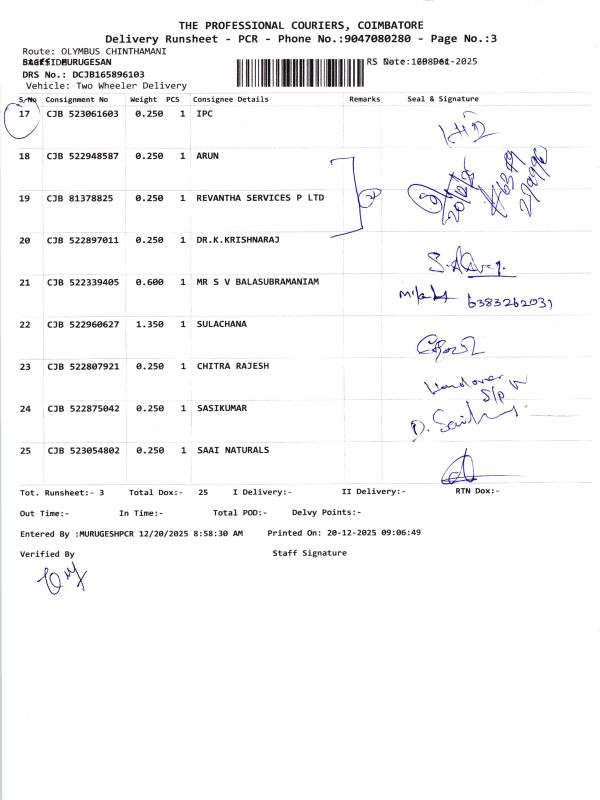 THE PROFESSIONAL COURIERS, COIMBATORE
Delivery Runsheet - PCR - Phone No.:9047080280 - Page No.:3
Route: OLYMBUS CHINTHAMANI
MURUGESAN
DRS No.: DCJB165896103
Vehicle: Two Wheeler Delivery
S.No Consignment No Weight PCS Consignee Details Remarks Seal & Signature
17 CJB 523061603 0.250 1 IPC
18 CJB 522948587 0.250 1 ARUN
19 CJB 81378825 0.250 1 REVANTHA SERVICES P LTD
20 CJB 522897011 0.250 1 DR.K.KRISHNARAJ
21 CJB 522339405 0.600 1 MR S V BALASUBRAMANIAM
6383262031
22 CJB 522960627 1.350 1 SULACHANA
23 CJB 522807921 0.250 1 CHITRA RAJESH
Handover
S/P
24 CJB 522875042 0.250 1 SASIKUMAR
25 CJB 523054802 0.250 1 SAAI NATURALS
Tot. Runsheet:- 3 Total Dox:- 25 I Delivery:- II Delivery:- RTN Dox:-
Out Time:- In Time:- Total POD:- Delvy Points:-
Entered By :MURUGESHPCR 12/20/2025 8:58:30 AM Printed On: 20-12-2025 09:06:49
Verified By Staff Signature